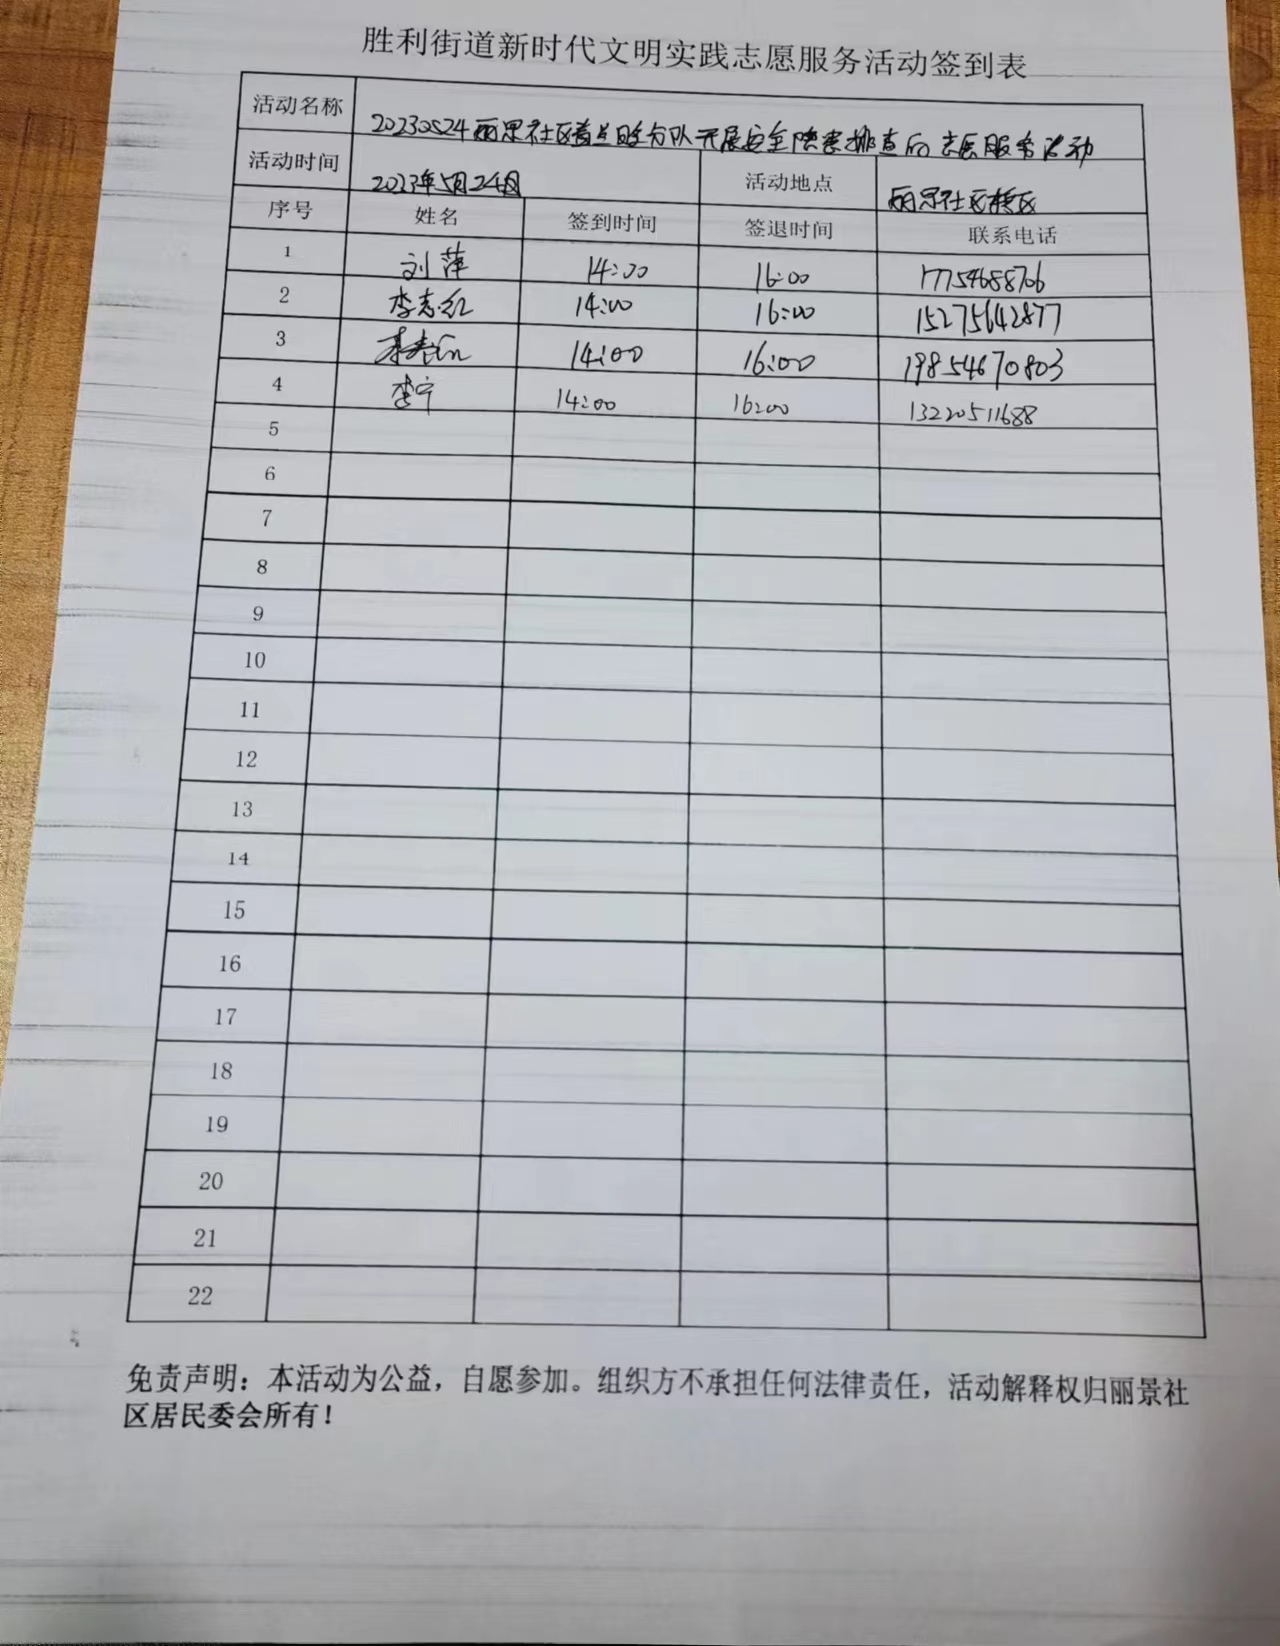 胜利街道新时代文明实践志愿服务活动签到表
活动名称 20230524丽景社区 分队开展安全隐患排查的志愿服务活动
活动时间 2023年5月24日 活动地点 丽景社区辖区
序号 姓名 签到时间 签退时间 联系电话
1 刘萍 14:00 16:00 17754688706
2 李志红 14:00 16:00 15275642877
3 14:00 16:00 19854670803
4 李宁 14:00 16:00 13220511688
5
6
7
8
9
10
11
12
13
14
15
16
17
18
19
20
21
22
免责声明：本活动为公益，自愿参加。组织方不承担任何法律责任，活动解释权归丽景社
区居民委会所有！